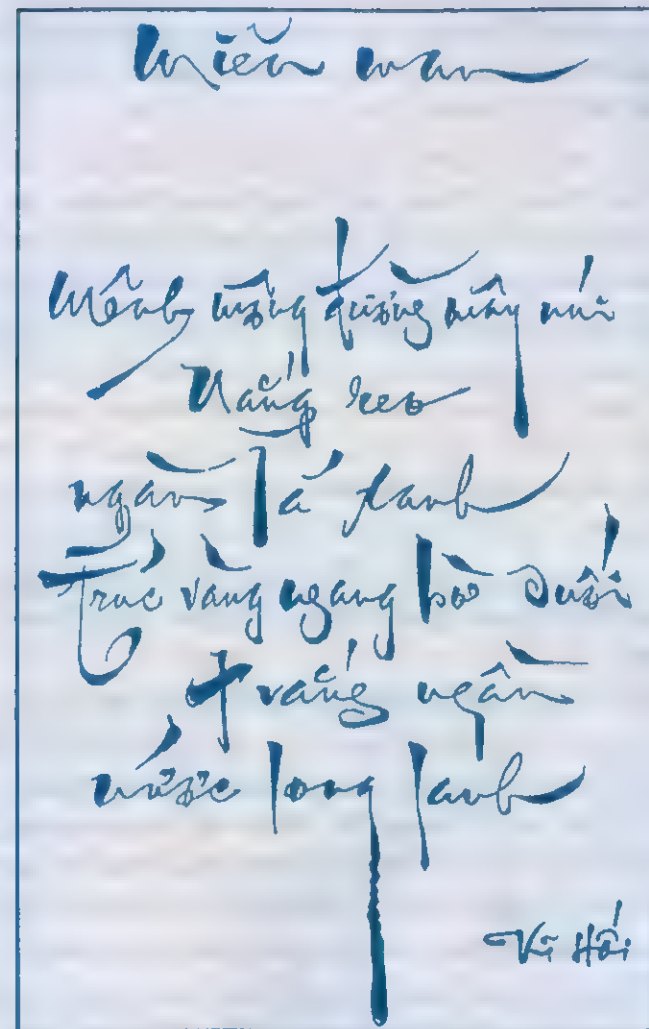 Miên man
Mênh mông đường mây núi
Nắng reo
ngàn lá xanh
Trúc vàng ngang bờ suối
Trắng ngần
nước long lanh
Vĩ Hối